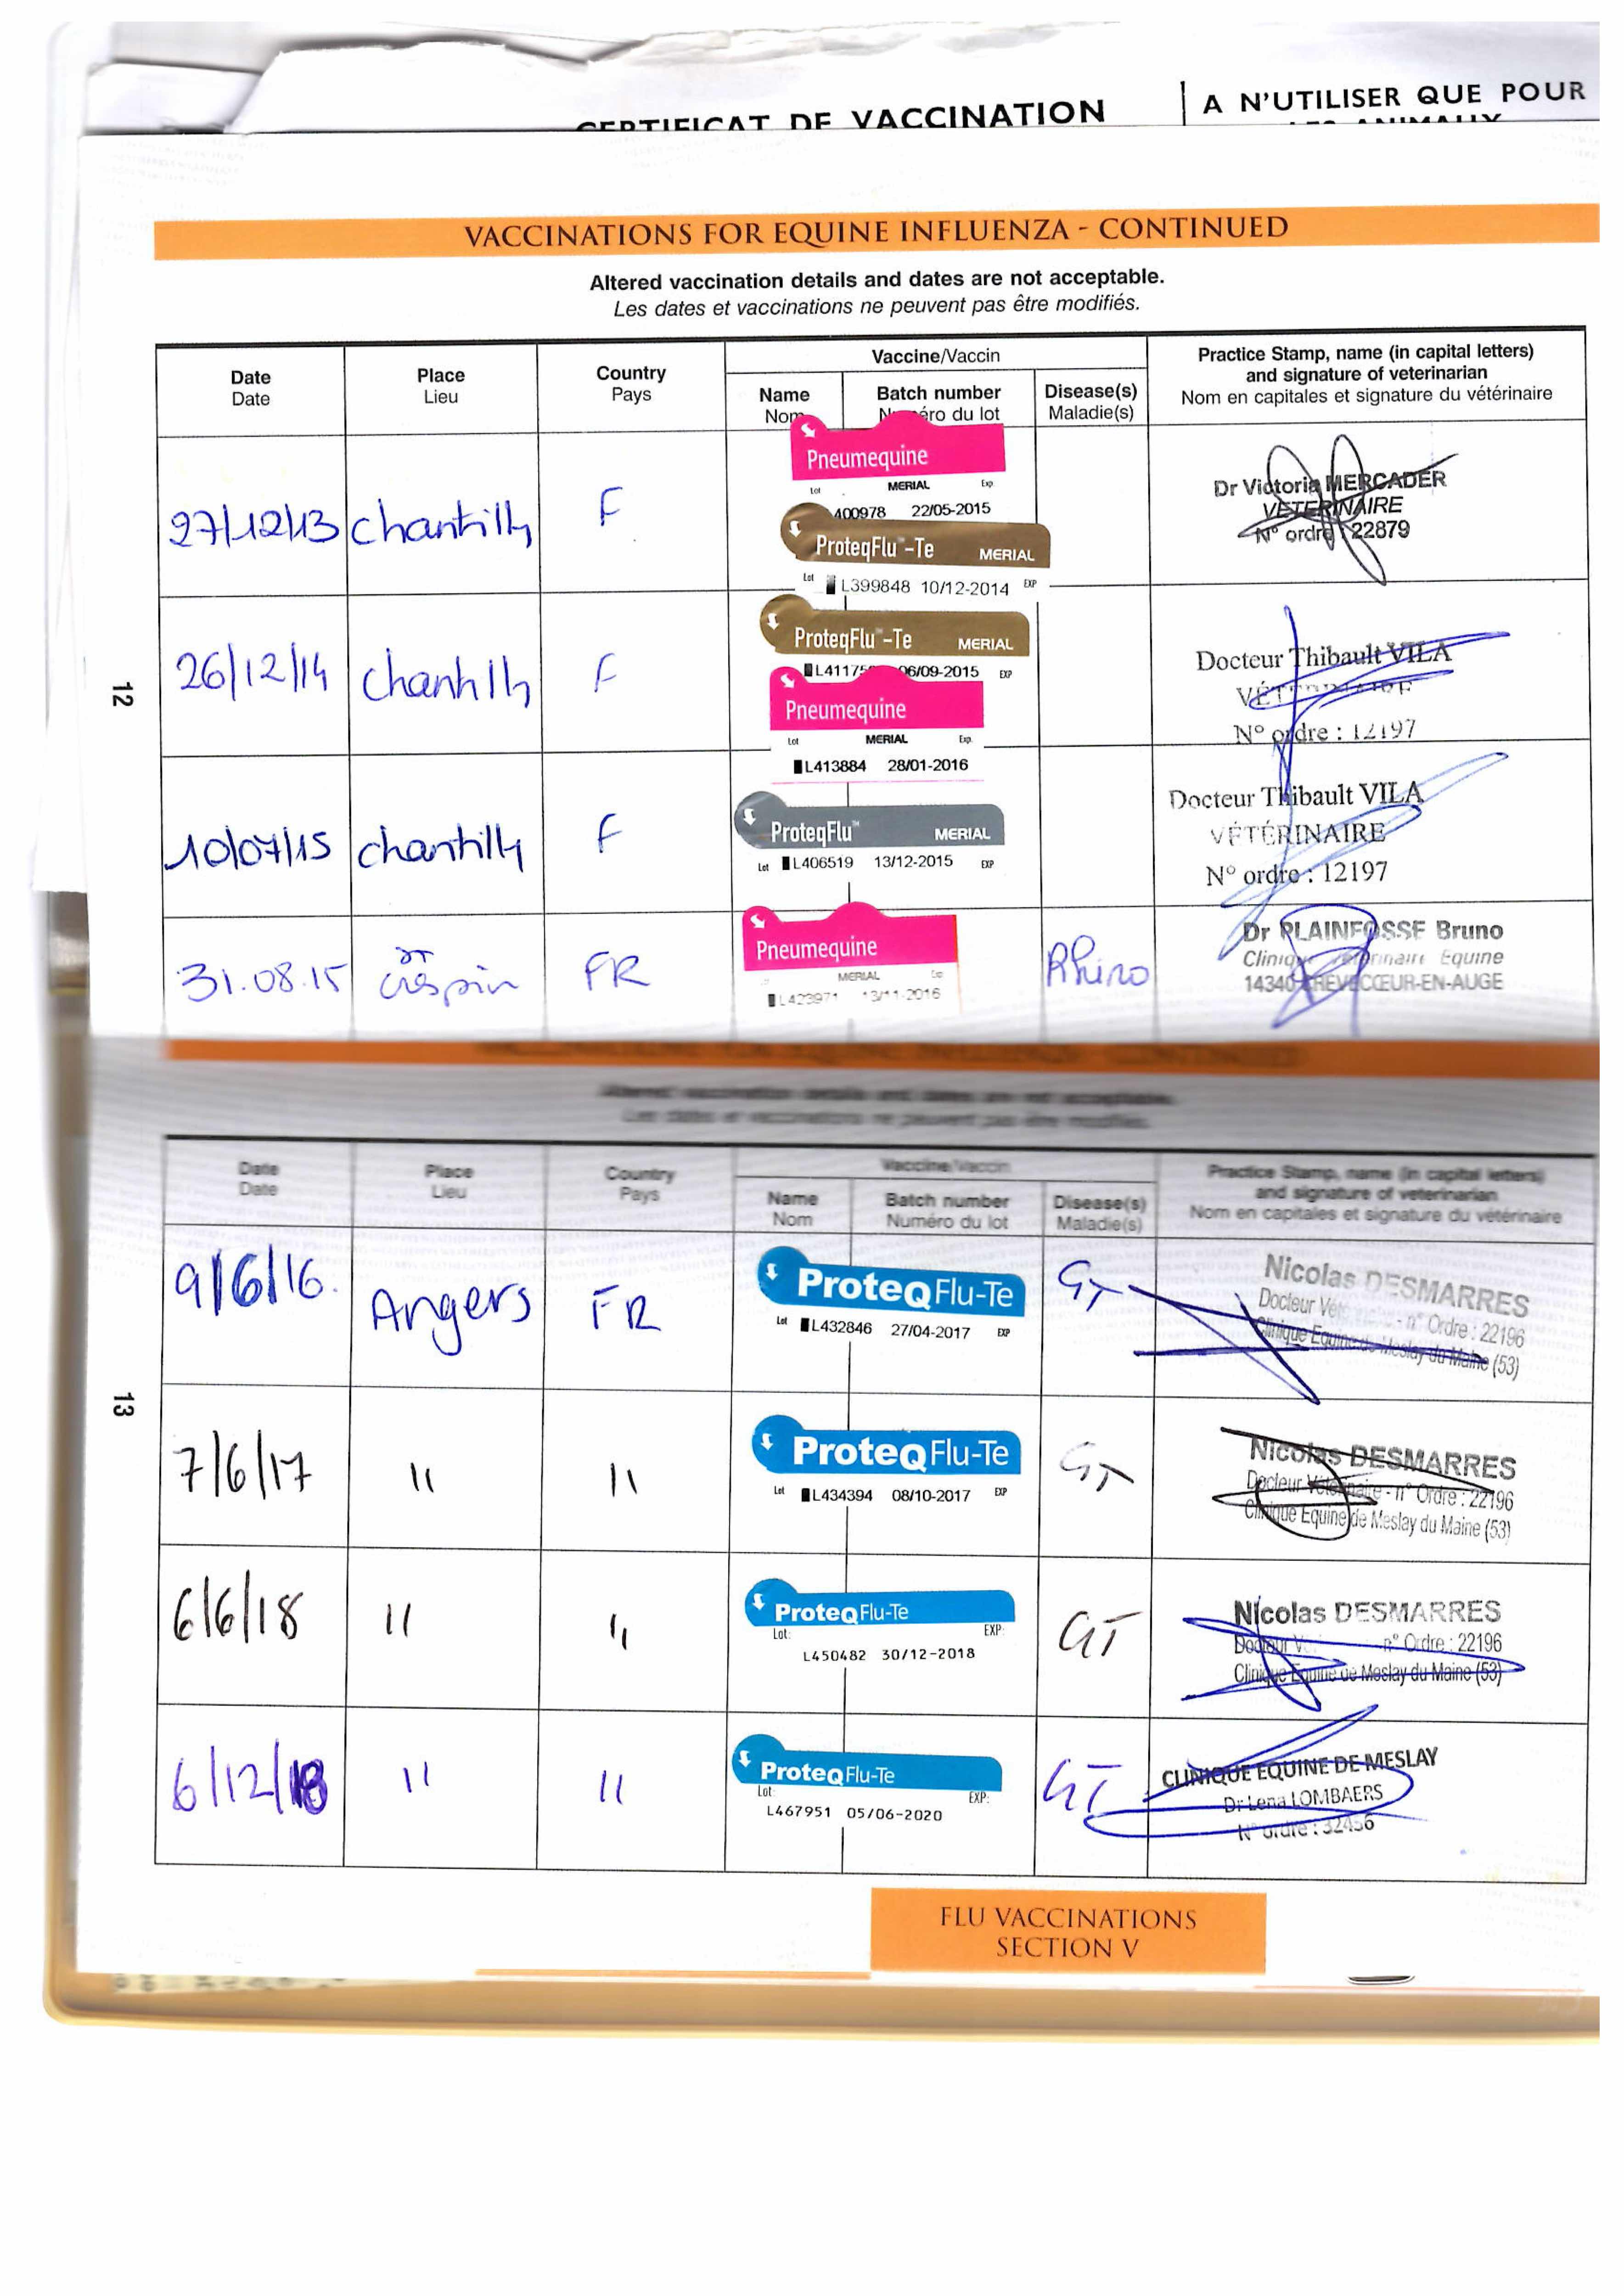 CERTIFICAT DE VACCINATION
A N'UTILISER QUE POUR
LES ANIMAUX
VACCINATIONS FOR EQUINE INFLUENZA - CONTINUED
Altered vaccination details and dates are not acceptable.
Les dates et vaccinations ne peuvent pas être modifiés.
Date
Date
Place
Lieu
Country
Pays
Vaccine/Vaccin
Name
Nom
Batch number
Numéro du lot
Disease(s)
Maladie(s)
Practice Stamp, name (in capital letters)
and signature of veterinarian
Nom en capitales et signature du vétérinaire
27/12/13 Chantilly F
Pneumequine
Lot MERIAL Exp
400978 22/05-2015
ProteqFlu™-Te MERIAL
Lot L399848 10/12-2014 EXP
Dr Victoria MERCADER
VETERINAIRE
N° ordre 22879
12
26/12/14 Chantilly F
ProteqFlu™-Te MERIAL
L41175 06/09-2015 EXP
Pneumequine
Lot MERIAL Exp.
L413884 28/01-2016
Docteur Thibault VILA
VÉTÉRINAIRE
N° ordre : 12197
10/07/15 Chantilly F
ProteqFlu™ MERIAL
Lot L406519 13/12-2015 EXP
Docteur Thibault VILA
VÉTÉRINAIRE
N° ordre : 12197
31.08.15 St Crespin FR
Pneumequine
MERIAL Exp
L423971 13/11-2016
Rhino
Dr PLAINFOSSE Bruno
Clinique Vétérinaire Equine
14340 CREVECŒUR-EN-AUGE
VACCINATIONS FOR EQUINE INFLUENZA - CONTINUED
Altered vaccination details and dates are not acceptable.
Les dates et vaccinations ne peuvent pas être modifiés.
Date
Date
Place
Lieu
Country
Pays
Vaccine/Vaccin
Name
Nom
Batch number
Numéro du lot
Disease(s)
Maladie(s)
Practice Stamp, name (in capital letters)
and signature of veterinarian
Nom en capitales et signature du vétérinaire
9/6/16. Angers FR
ProteqFlu-Te
Lot L432846 27/04-2017 EXP
GT
Nicolas DESMARRES
Docteur Vétérinaire - n° Ordre : 22196
Clinique Equine de Meslay du Maine (53)
13
7/6/17 " "
ProteqFlu-Te
Lot L434394 08/10-2017 EXP
GT
Nicolas DESMARRES
Docteur Vétérinaire - n° Ordre : 22196
Clinique Equine de Meslay du Maine (53)
6/6/18 " "
ProteqFlu-Te
Lot: EXP:
L450482 30/12-2018
GT
Nicolas DESMARRES
Docteur V n° Ordre : 22196
Clinique Equine de Meslay du Maine (53)
6/12/18 " "
ProteqFlu-Te
Lot: EXP:
L467951 05/06-2020
GT
CLINIQUE EQUINE DE MESLAY
Dr Lena LOMBAERS
N° ordre : 32456
FLU VACCINATIONS
SECTION V